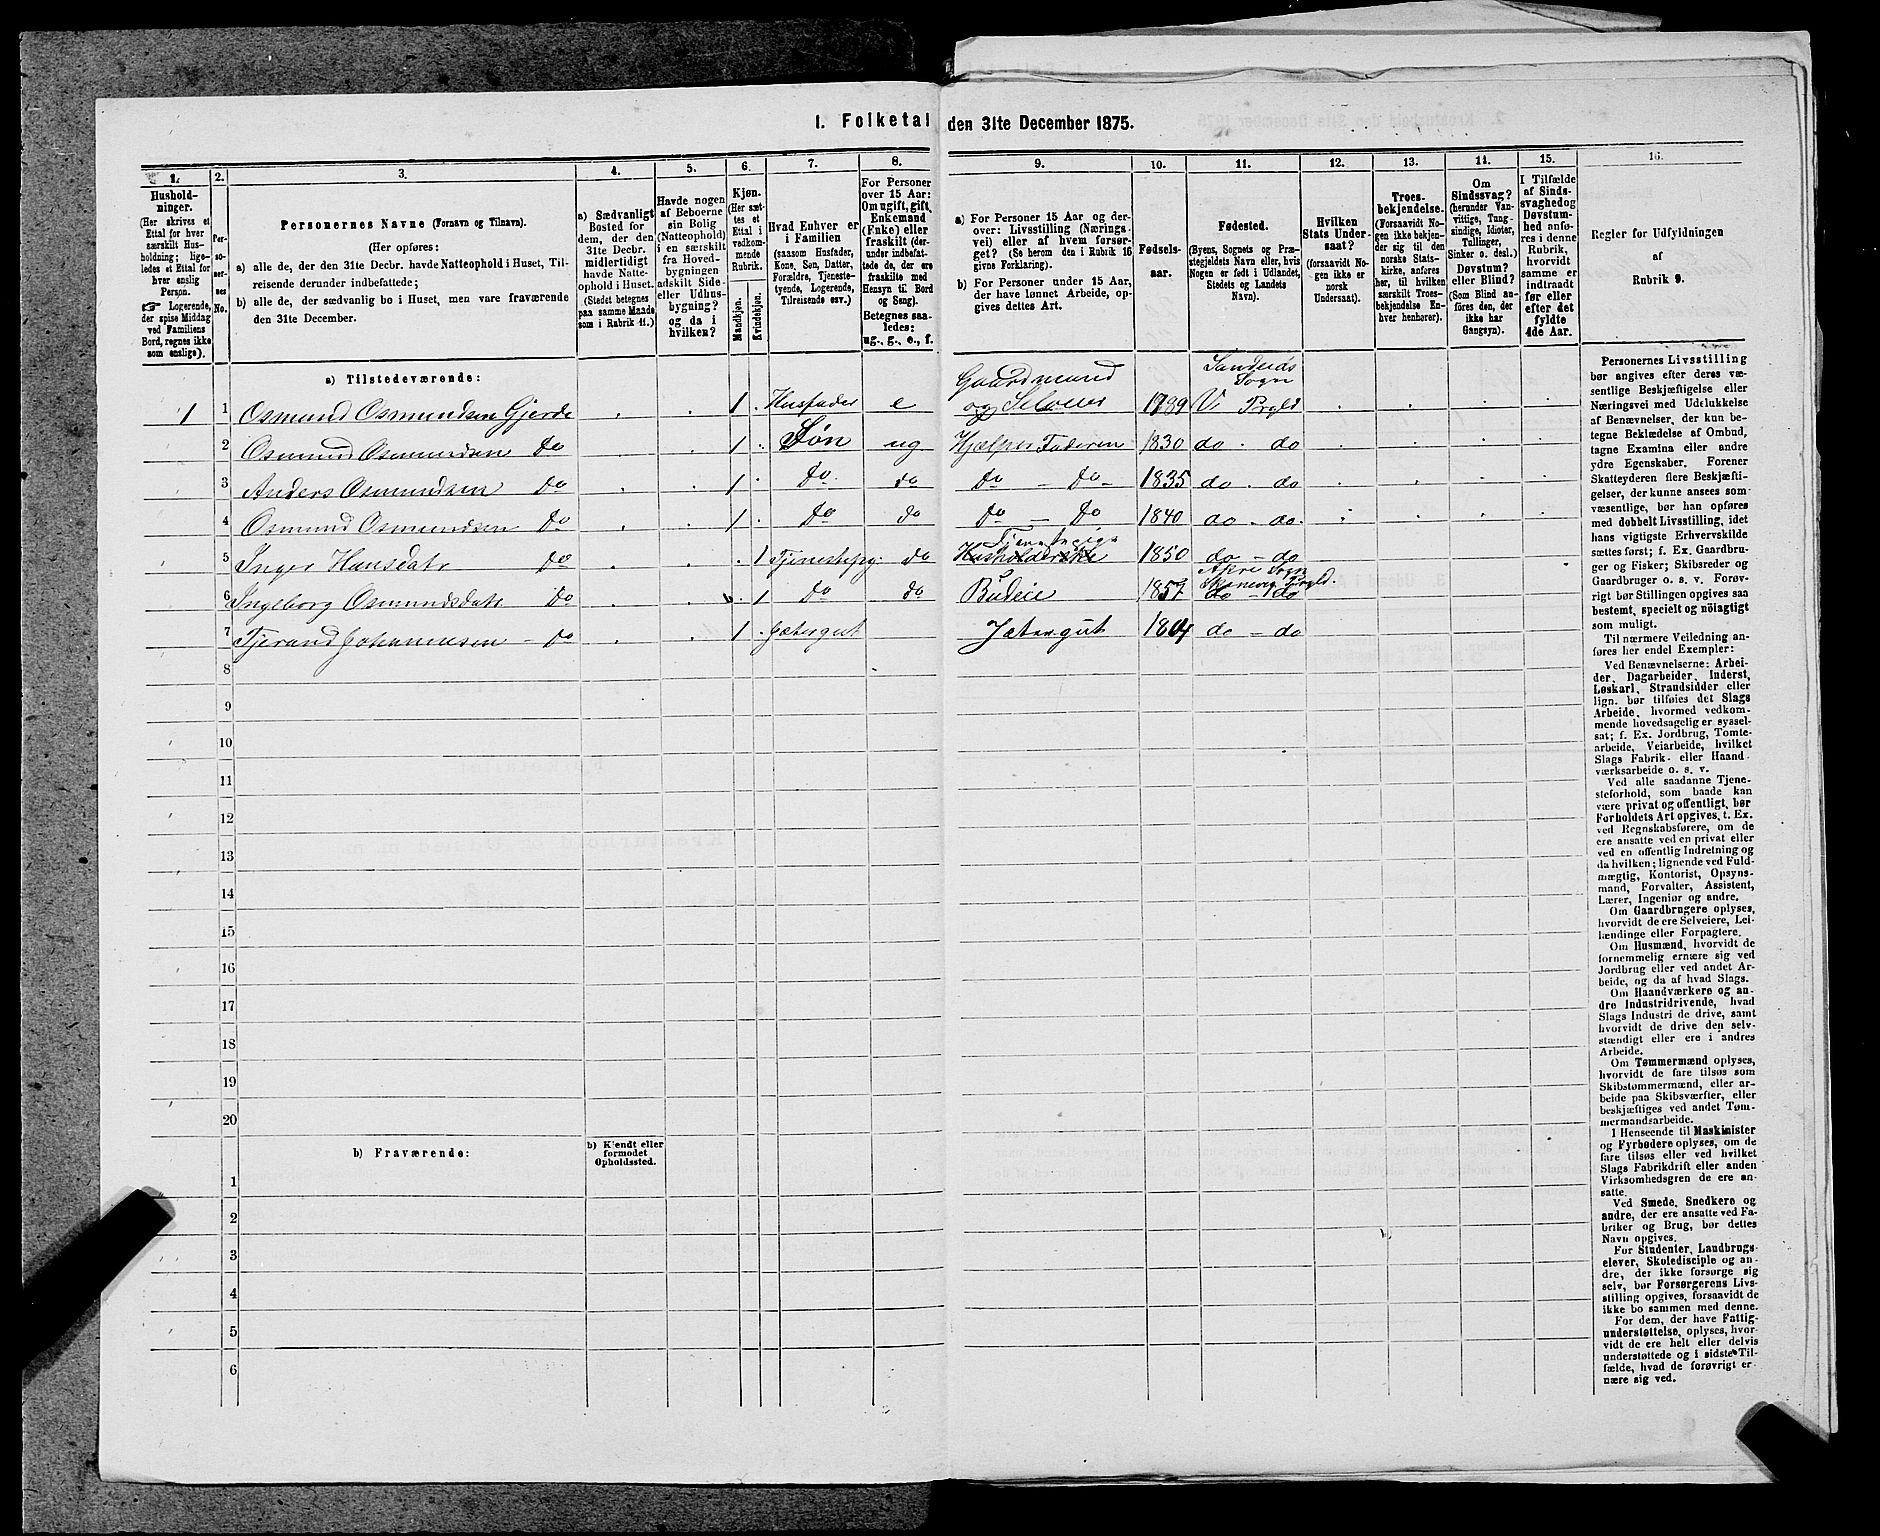 I. Folketal den 31te December 1875.
1. 2. 3. 4. 5. 6. 7. 8. 9. 10. 11. 12. 13. 14. 15. 16.
Hushold-
ninger.
(Her skrives et
Ettal for hver
særskilt Hus-
holdning; lige-
ledes et Ettal for
hver enslig
Person.
☞ Logerende,
der spise Middag
ved Familiens
Bord, regnes ikke
som enslige).
Per-
so-
ner-
nes
No.
Personernes Navne (Fornavn og Tilnavn).
(Her opføres:
a) alle de, der den 31te Decbr. havde Natteophold i Huset, Til-
reisende derunder indbefattede;
b) alle de, der sædvanlig bo i Huset, men vare fraværende
den 31te December.
a) Sædvanligt
Bosted for
dem, der den
31te Decbr.
midlertidigt
havde Natte-
ophold i Huset.
(Stedet betegnes
paa samme Maade
som i Rubrik 11.)
Havde nogen
af Beboerne
sin Bolig
(Natteophold)
i en særskilt
fra Hoved-
bygningen
adskilt Side-
eller Udhus-
bygning?
og da i
hvilken?
Kjøn.
(Her sæt-
tes et
Ettal i
vedkom-
mende
Rubrik.
Mandkjøn.
Kvindekjøn.
Hvad Enhver er
i Familien
(saasom Husfader,
Kone, Søn, Datter,
Forældre, Tjeneste-
tyende, Logerende,
Tilreisende osv.)
For Personer
over 15 Aar:
Om ugift, gift,
Enkemand
(Enke) eller
fraskilt (der-
under indbefat-
tede de, der ere
fraskilte med
Hensyn til Bord
og Seng).
Betegnes saa-
ledes:
ug., g., e., f.
a) For Personer 15 Aar og der-
over: Livsstilling (Nærings-
vei) eller af hvem forsør-
get? (Se herom den i Rubrik 16
givne Forklaring).
b) For Personer under 15 Aar,
der have lønnet Arbeide, op-
gives dettes Art.
Fødsels-
aar.
Fødested.
(Byens, Sognets og Præ-
stegjeldets Navn eller, hvis
Nogen er født i Udlandet,
Stedets og Landets
Navn).
Hvilken
Stats Under-
saat?
(forsaavidt No-
gen ikke er
norsk
Undersaat).
Troes-
bekjendelse.
(Forsaavidt No-
gen ikke bekjen-
der sig til den
norske Stats-
kirke, anføres
her, til hvilken
særskilt Troes-
bekjendelse En-
hver henhører).
Om
Sindssvag?
(herunder Van-
vittige, Tung-
sindige, Idioter,
Tullinger,
Sinker o. desl.)
Døvstum?
eller Blind?
(Som Blind an-
føres den, der
ikke har
Gangsyn).
I Tilfælde
af Sinds-
svaghed og
Døvstum-
hed anfø-
res i denne
Rubrik,
hvorvidt
samme er
indtraadt
før eller
efter det
fyldte
4de Aar.
Regler for Udfyldningen
af
Rubrik 9.
a) Tilstedeværende:
1 1 Osmund Osmundsen Gjerde 1 Husfader e Gaardmand og Selveier 1789 Sandeids Sogn Vi Prgld
2 Osmund Osmundsen Do 1 Søn ug Hjælper Faderen 1830 do . do
3 Anders Osmundsen Do 1 Do do Do - Do 1835 do . do
4 Osmund Osmundsen Do 1 Do do Do - Do 1840 do . do
5 Inger Hansdatr Do 1 do 1850 do - do
6 Ingeborg Osmundsdatr Do 1 Do do Budeie 1857
7 Tjerand Johannesen - Do 1 Gjætergut Jætergut do - do
8
9
10
11
12
13
14
15
16
17
18
19
20
b) Fraværende:
b) Kjendt eller
formodet
Opholdssted.
1
2
3
4
5
6
Personernes Livsstilling
bør angives efter deres væ-
sentlige Beskjæftigelse eller
Næringsvei med Udelukkelse
af Benævnelser, der kun be-
tegne Beklædelse af Ombud,
tagne Examina eller andre
ydre Egenskaber. Forener
Skatteyderen flere Beskjæfti-
gelser, der kunne ansees som
væsentlige, bør han opføres
med dobbelt Livsstilling, idet
hans vigtigste Erhvervskilde
sættes først; f. Ex. Gaardbru-
ger og Fisker; Skibsreder og
Gaardbruger o. s. v. Forøv-
rigt bør Stillingen opgives saa
bestemt, specielt og nöiagtigt
som muligt.
Til nærmere Veiledning an-
føres her endel Exempler:
Ved Benævnelserne: Arbei-
der, Dagarbeider, Inderst,
Løskarl, Strandsidder eller
lign. bør tilføies det Slags
Arbeide, hvormed vedkom-
mende hovedsagelig er syssel-
sat; f. Ex. Jordbrug, Tomte-
arbeide, Veiarbeide, hvilket
Slags Fabrik- eller Haand-
værksarbeide o. s. v.
Ved alle saadanne Tjene-
steforhold, som baade kan
være privat og offentligt, bør
Forholdets Art opgives, t. Ex.
ved Regnskabsførere, om de
ere ansatte ved en privat eller
ved en offentlig Indretning og
da hvilken; lignende ved Fuld-
mægtig, Kontorist, Opsyns-
mand, Forvalter, Assistent,
Lærer, Ingeniør og andre.
Om Gaardbrugere oplyses,
hvorvidt de ere Selveiere, Lei-
lændinge eller Forpagtere.
Om Husmænd, hvorvidt de
fornemmelig ernære sig ved
Jordbrug eller ved andet Ar-
beide, og da af hvad Slags.
Om Haandværkere og an-
dre Industridrivende, hvad
Slags Industri de drive, samt
hvorvidt de drive den selv-
stændigt eller ere i andres
Arbeide.
Om Tømmermænd oplyses,
hvorvidt de fare tilsøs som
Skibstømmermænd, eller ar-
beide paa Skibsværfter, eller
beskjæftiges ved andet Tøm-
mermandsarbeide.
I Henseende til Maskinister
og Fyrbødere oplyses, om de
fare tilsøs eller ved hvilket
Slags Fabrikdrift eller anden
Virksomhedsgren de ere an-
satte.
Ved Smede, Snedkere og
andre, der ere ansatte ved Fa-
briker og Brug, bør dettes
Navn opgives.
For Studenter, Landbrugs-
elever, Skoledisciple og an-
dre, der ikke forsørge sig
selv, bør Forsørgerens Livs-
stilling opgives, forsaavidt de
ikke bo sammen med denne.
For dem, der have Fattig-
understøttelse, oplyses, hvor-
vidt de ere helt eller delvis
understøttede og i sidste Til-
fælde, hvad de forøvrigt er-
nære sig ved.